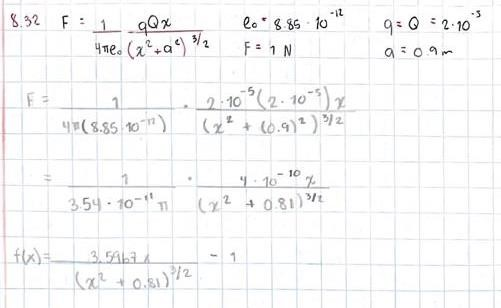 8.32 F = 1/4πe₀ qQx/(x² + a²)^3/2 e₀ = 8.85 · 10^-12 q = Q = 2 · 10^-5
F = 1 N a = 0.9 m
F = 1/4π(8.85·10^-12) · 2·10^-5(2·10^-5)x/(x² + (0.9)²)^3/2
= 1/3.54 · 10^-11 π · 4·10^-10 x/(x² + 0.81)^3/2
f(x) = 3.5967x/(x² + 0.81)^3/2 - 1